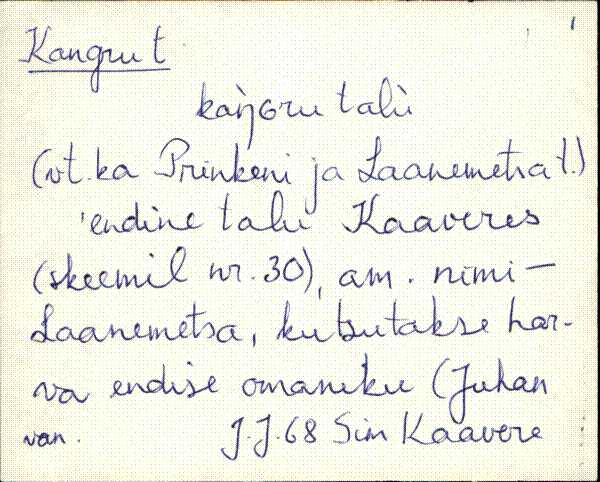 1
Kangru t
kaŋgru talù
(vt. ka Prinkeni ja Laanemetsa t.)
'endine talu Kaaveres
(skeemil nr. 30), am. nimi –
Laanemetsa, kutsutakse har-
va endise omaniku (Juhan
van. J.J. 68 Sim Kaavere